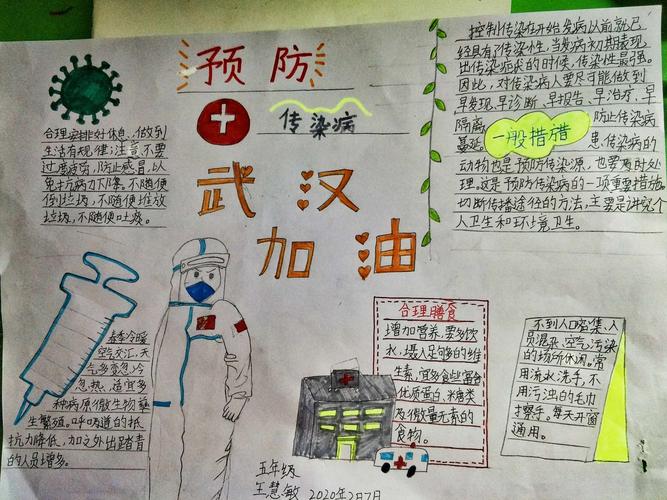 预防
传染病
武汉
加油
合理安排好休息、做到
生活有规律；注意不要
过度疲劳，防止感冒，以
免抗病力下降，不随便
倒垃圾，不随便堆放
垃圾，不随便吐痰。
控制传染在开始发病以前就已
经具有了传染性，当发病初期表现
出传染症状的时候，传染性最强。
因此，对传染病人要尽可能做到
早发现，早诊断、早报告、早治疗，早
隔离 防止传染病
蔓延 患传染病的
一般措措
动物也是预防传染源，也要及时处
理，这是预防传染病的一项重要措施，
切断传播途径的方法，主要是讲究个
人卫生和环境卫生。
春季冷暖
空气交汇，天
气多变忽冷
忽热，适宜多
种病原微生物
生繁殖。呼吸道的抵
抗力降低，加之外出踏青
的人员增多。
合理膳食
增加营养，要多饮
水，摄入足够的维
生素，宜多食些富含
优质蛋白、糖类
及微量元素的
食物。
不到人口密集、人
员混杂、空气污染
的场所休闲。常
用流水洗手，不
用污浊的毛巾
擦手。每天开窗
通用。
五年级
王慧敏 2020年2月7日